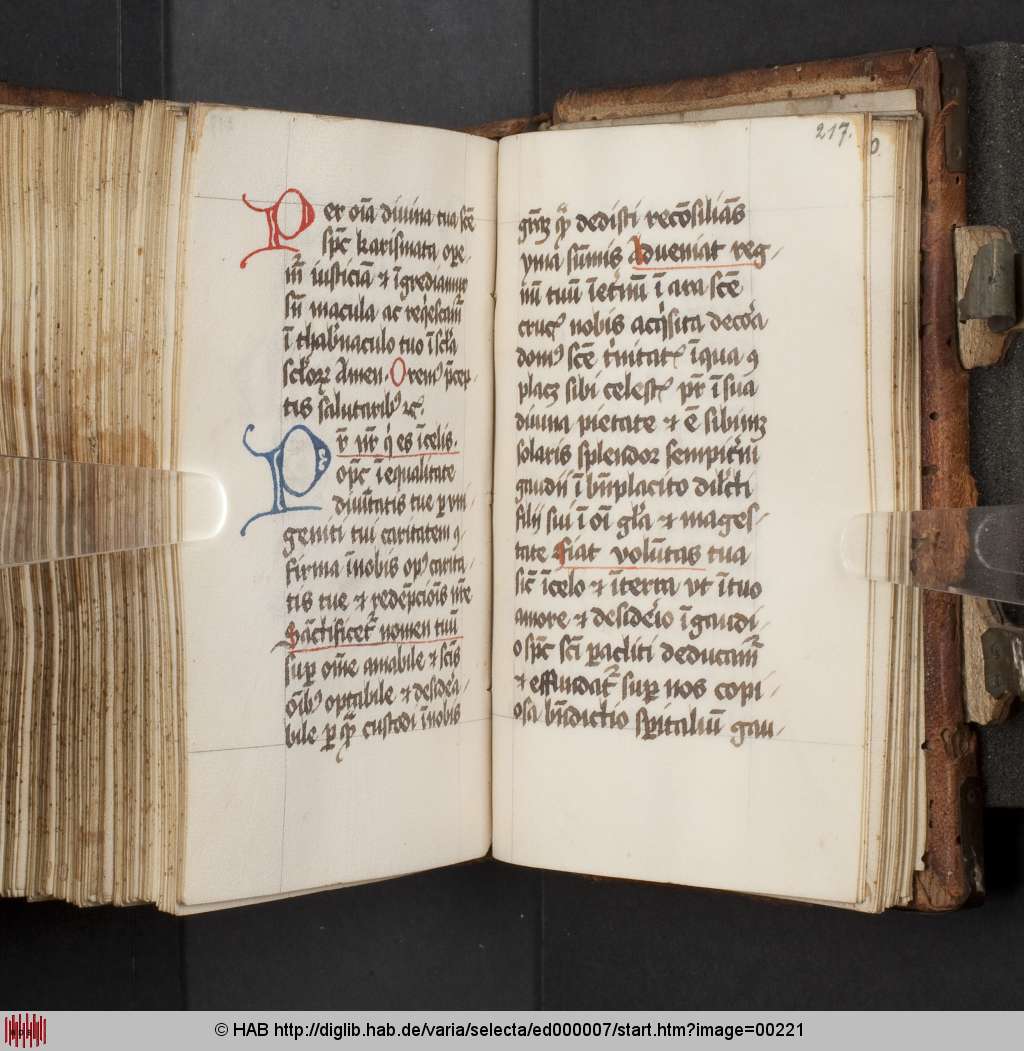 Per oīa divina tua scē
spc̄ karismata ope-
m̄ iusticiā & īgrediamur
sn̄ macula ac
ī thab'naculo tuo ī scl'a
scl'orȝ Amen. Orem' p̄cep-
tis salutarib' &c.
Pr̄ nr̄ q' es ī celis.
ī equalitate
divītatis tue
geniti tui caritatem
firma ī nobis op' carita-
tis tue & redēpciōis nr̄e
Sāctificet' nomen tuū
sup om̄e amabile & scīs
oīb' optabile & desid'a-
bile custodi ī nobis
dedisti recōsiliās
yma sūmis Adveniat reg-
nū tuū ī et'nū ī ara scē
cruc' nobis acq'sita deco'a
dom' scē t'nitat' ī qua
sibi celest' pr̄ ī sua
divina pietate & ē sibimȝ
solaris splendor sempit'ni
gaudii ī bn̄placito dil'cti
filii sui ī oī gl'a & mages-
tate fiat volūtas tua
sic̄ ī celo & ī terra vt ī tuo
amore & desid'io ī gaudi-
o spc̄ scī pacliti deducam'
& effundat' sup nos copi-
osa bn̄dictio spitaliū gau-
217.
© HAB http://diglib.hab.de/varia/selecta/ed000007/start.htm?image=00221